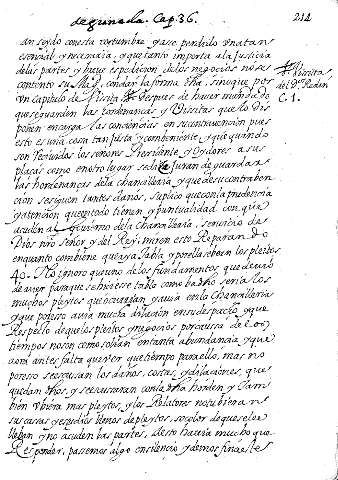 segunda. Cap. 36. 212
an seydo con esta costumbre y ase pendido una tan
esencial y necesaria, y que tanto importa a la Justicia
de las partes, y breve espedicion de los negocios no se
contento su Mag. con dar la forma dha, sino que por
un Capitulo de Visita despues de haver mandado
que se guarden las hordenanças y Visitas que lo dis
ponen encarga las conciencias en su contravencion pues
esto es una cosa tan justa y combeniente, y que quando
son recevidos los señores Presidente, y Oydores a sus
plaças como en otro lugar se dira Juran de guardar
las hordenanças de la chancilleria y que de su contraben
cion se siguen tantos daños, suplico que con la prudencia
y atencion que en todo tienen y puntualidad con que
acuden al govierno de la Chancilleria, servicio de
Dios nro señor y del Rey, miren este Reparando
en quanto combiene que aya tabla y por ella se vean los pleitos
40. No ignoro que uno de los fundamentos que
de aver para que se hiciesse tabla como ba dho seria los
muchos pleytos que ocurrian y avia en la Chancilleria
y que por esto avia mucha dilacion en su despacio y que
Respecto de que los pleitos y negocios por causa de los
tiempos no son como solian en tanta abundancia y que
aora antes falta que ver que tiempo para ello, mas no
por esso se escusan los daños, costas, y dilaciones, que
quedan dhos, y se escusaran con la dha horden y tam
bien ubiera mas pleytos, y los Relatores no tubieran en
sus casas y escudios llenos de pleytos, so color de que se los
lleban y no acuden las partes, desto havia mucho que
Responder, pasemos algo en silencio y demos fin a este
V. Visitas
del Dr. Redin
C. 1.